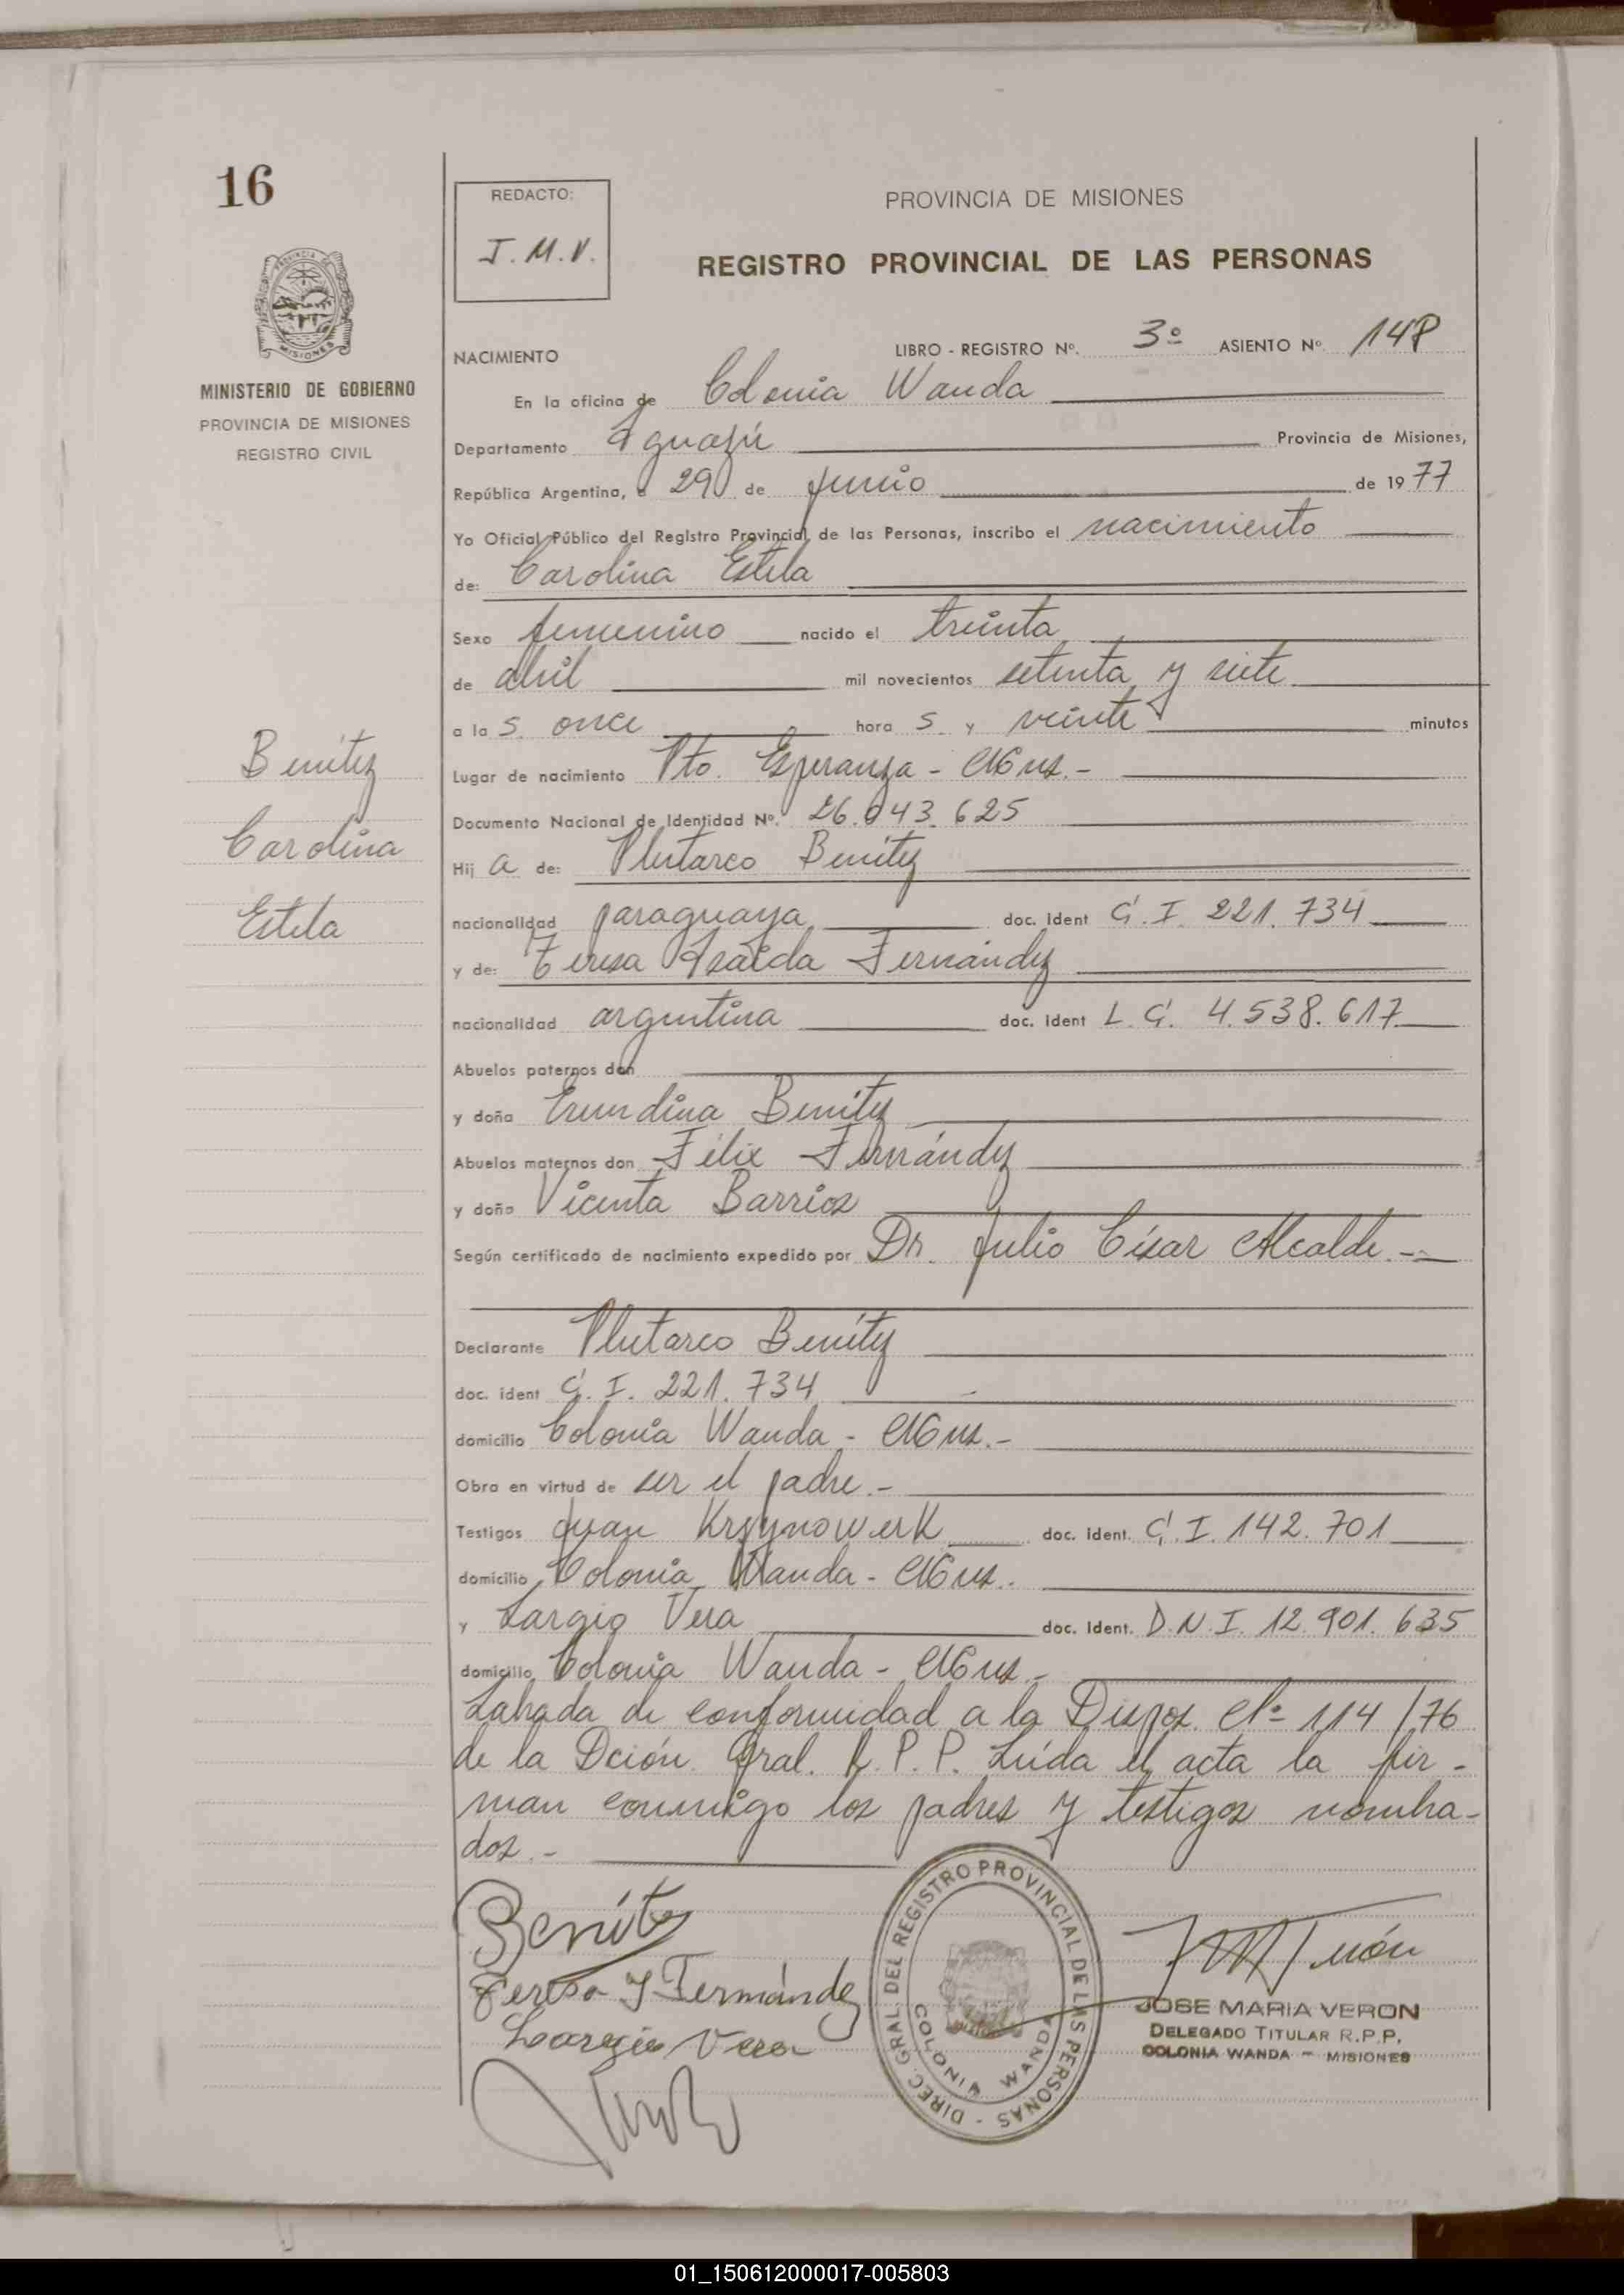 16
REDACTO:
J. M. V.
PROVINCIA DE MISIONES
REGISTRO PROVINCIAL DE LAS PERSONAS
MINISTERIO DE GOBIERNO
PROVINCIA DE MISIONES
REGISTRO CIVIL
NACIMIENTO
LIBRO - REGISTRO Nº. 3º ASIENTO Nº. 148
En la oficina de Colonia Wanda
Departamento Iguazú Provincia de Misiones,
República Argentina, a 29 de junio de 1977
Yo Oficial Público del Registro Provincial de las Personas, inscribo el nacimiento
de: Carolina Estela
Sexo femenino nacido el treinta
de abril mil novecientos setenta y siete
a la s once hora s y veinte minutos
Benítez
Carolina
Estela
Lugar de nacimiento Pto. Esperanza - Mnes.-
Documento Nacional de Identidad Nº. 26.043.625
Hij a de: Plutarco Benítez
nacionalidad paraguaya doc. ident C. I. 221.734
y de: Teresa Isaída Fernández
nacionalidad argentina doc. ident L. C. 4.538.617
Abuelos paternos don
y doña Erundina Benítez
Abuelos maternos don Félix Fernández
y doña Vicenta Barrios
Según certificado de nacimiento expedido por Dr. Julio César Alcalde.-
Declarante Plutarco Benítez
doc. ident C. I. 221.734
domicilio Colonia Wanda - Mnes.-
Obra en virtud de ser el padre.-
Testigos Juan Krsynowerk doc. ident. C. I. 142.701
domicilio Colonia Wanda - Mnes.
y Largio Vera doc. Ident. D.N.I. 12.901.635
domicilio Colonia Wanda - Mnes.-
Labrada de conformidad a la Dispos. Nº 114/76
de la Dción. Gral. R.P.P. Leída el acta la fir-
man conmigo los padres y testigos nombra-
dos.-
Benítez
Teresa I Fernández
Largio Vera
DIREC. GRAL. DEL REGISTRO PROVINCIAL DE LAS PERSONAS -
COLONIA WANDA
JOSE MARIA VERON
DELEGADO TITULAR R.P.P.
COLONIA WANDA - MISIONES
01_150612000017-005803